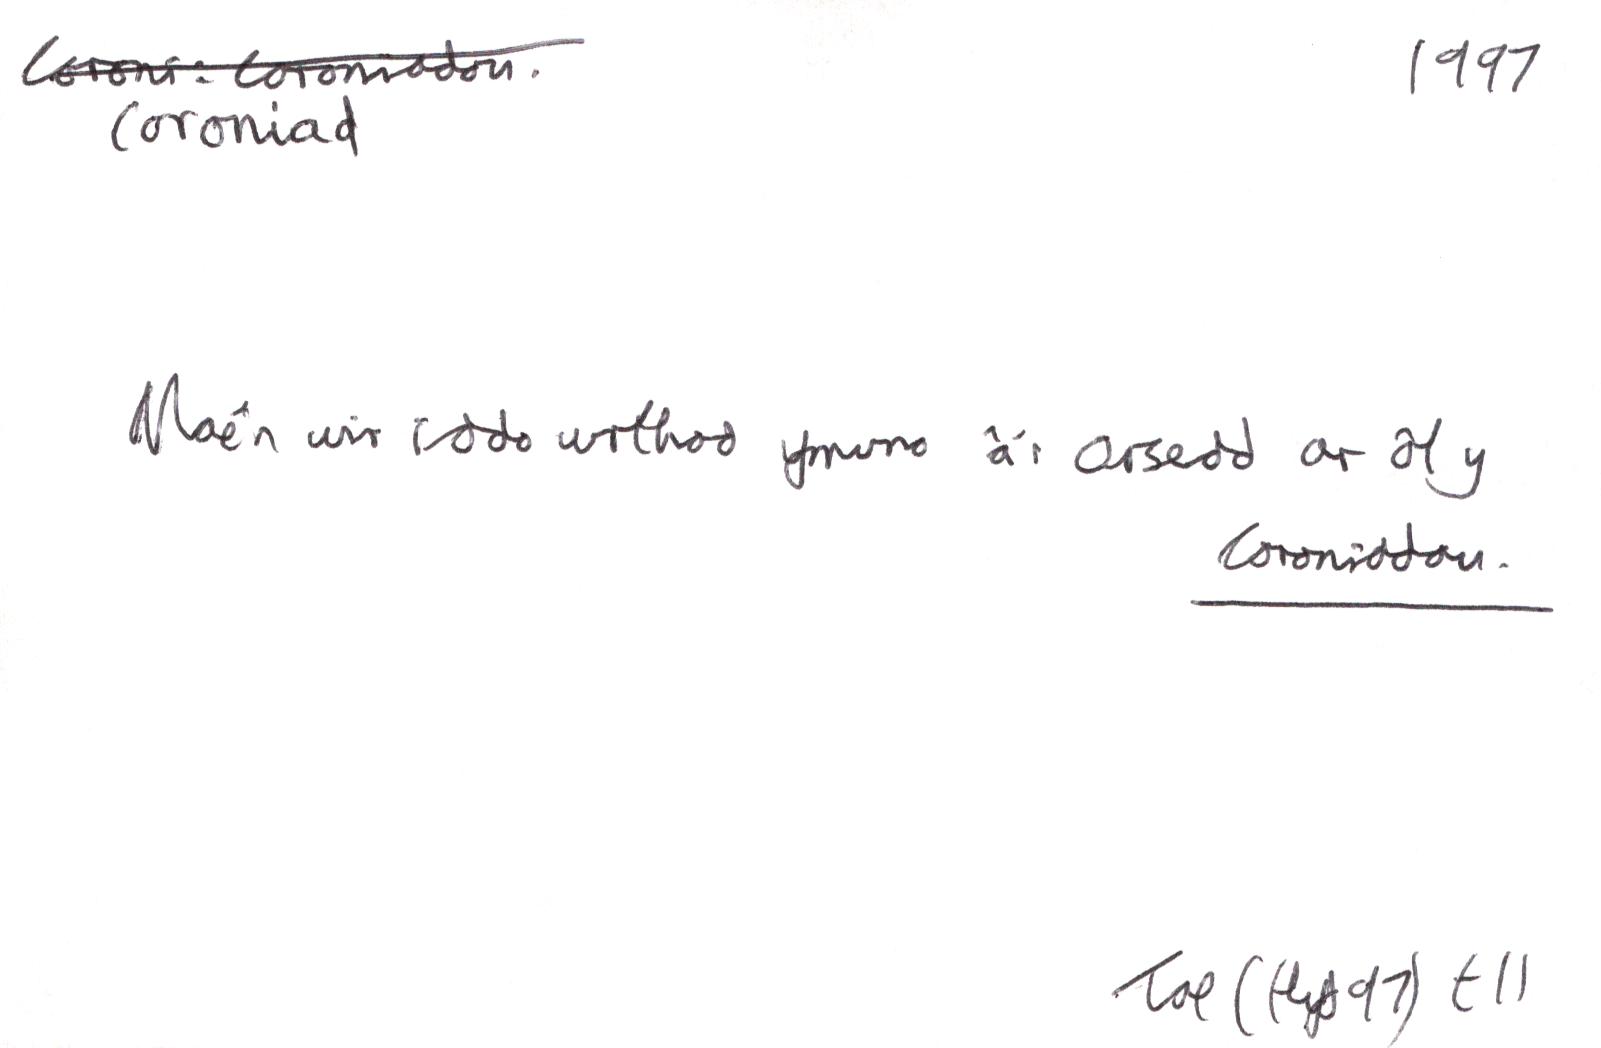 Coroni: Coroniadau. 1997
Coroniad
Mae'n wir iddo wrthod ymuno â'r Orsedd ar ôl y
Coroniadau.
(Hyd 97) t11